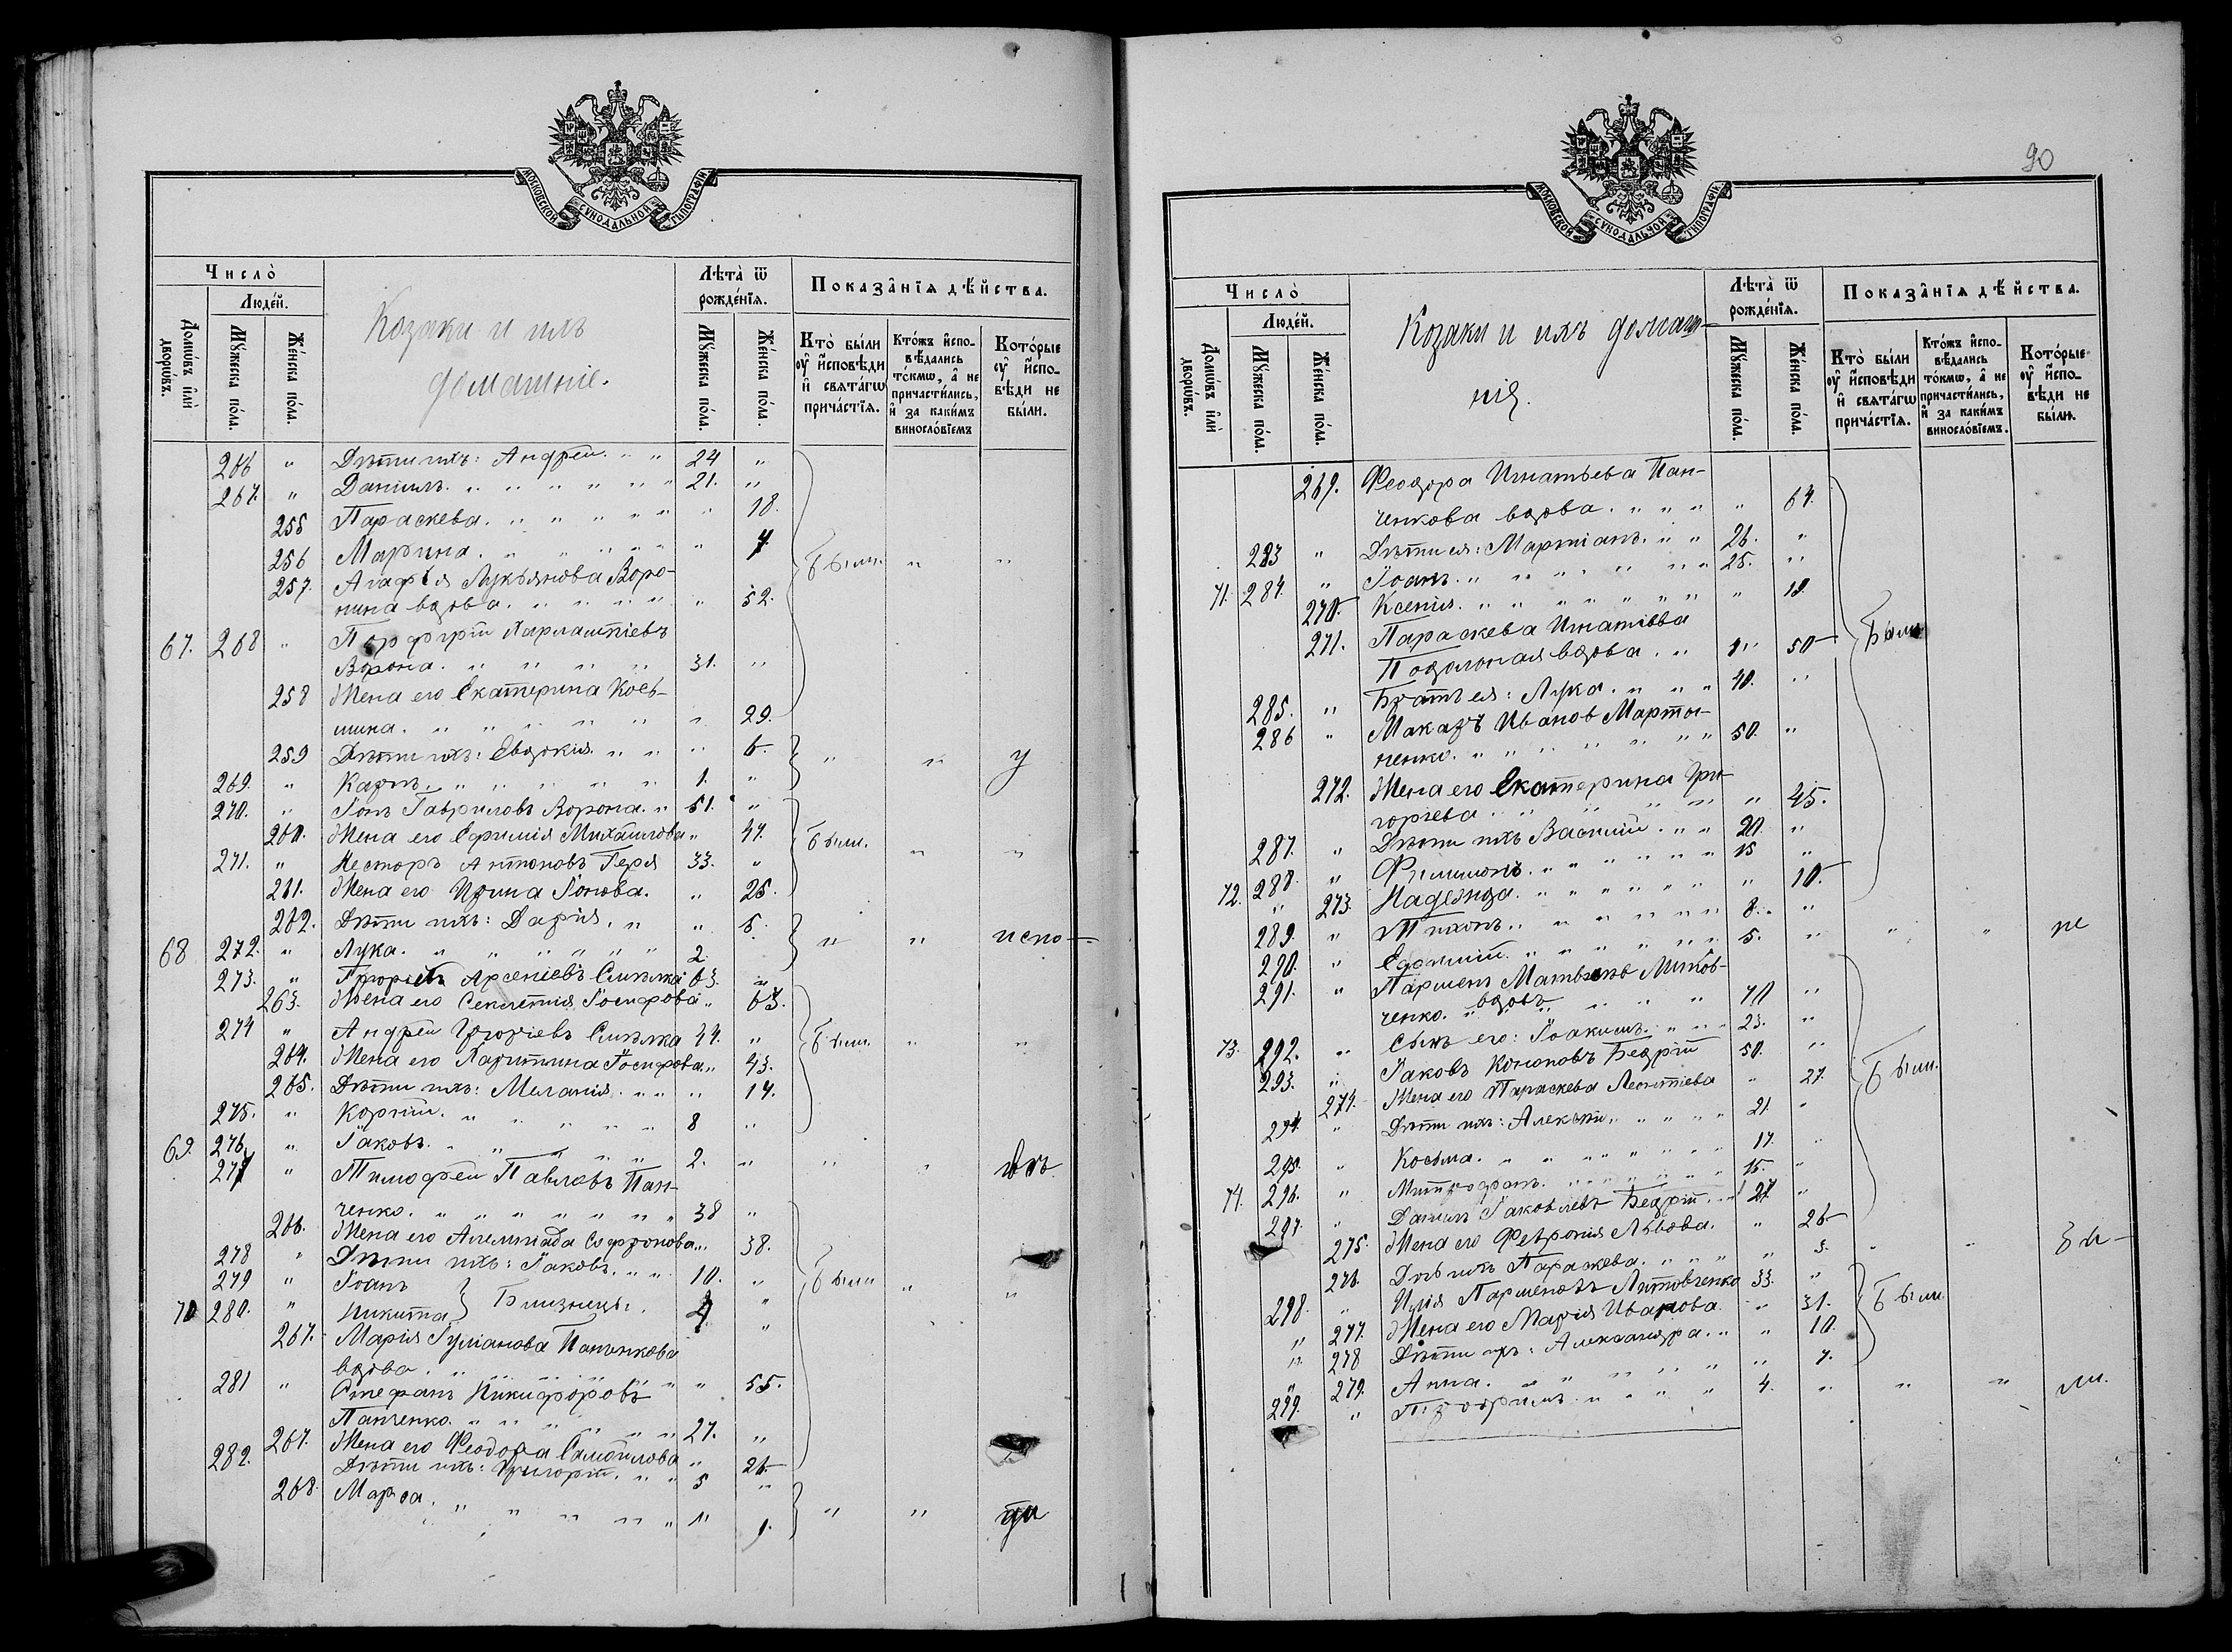 МОСКОВСКОЙ СУНОДАЛЬНОЙ ТИПОГРАФІИ
Число̀
Людей.
Домѡвъ и҆лѝ дворѡвъ.
Мꙋжеска по́ла.
Же́нска по́ла.
Козаки и ихъ
домашніе.
Лѣта̀ ѿ рожде́нїѧ.
Мꙋжеска по́ла.
Же́нска по́ла.
Показа̑нїѧ дѣ́йства.
Кто̀ бы́ли оу҆ и҆сповѣди и҆ свѧта́гѡ прича́стїѧ.
Кто́жъ и҆спо-вѣ́дались то́кмѡ, а҆ не причасти́лись, и҆ за каки́мъ винословїемъ
Кото́рые оу҆ и҆спо-вѣди не бы́ли.
266 " Дѣти ихъ: Андрей. " " 24 "
267. " Даніилъ. " " " " " " 21. "
255 Параскева. " " " " " " 18.
256 Марина. " " " " " " 7. Были. " "
257. Агафія Лукьянова Воро-
нина вдова. " " " " " 52.
67. 268 " Порфирій Харлампіевъ
Ворона. " " " " 31. "
258 Жена его Екатерина Кось-
мина. " " " " " " 29.
259 Дѣти ихъ: Евдокія. " " " 6. " " у
269. " Карпъ. " " " " " 1. "
270. " Іонъ Гавриловъ Ворона. " 51. "
260. Жена его Ефимія Михайлова " 47. Были. " "
271. " Несторъ Антоновъ Геря 33. "
261. Жена его Ирина Іонова. " 25.
262. Дѣти ихъ: Дарія. " " 5.
68 272. " Лука. " " " " " " 2. " " испо-
273. " Григорій Арсеніевъ Смѣлка 63. "
263. Жена его Секлетія Іосифова " 63.
274 " Андрей Григоріевъ Смѣлка 44. " Были. " "
264. Жена его Харитина Іосифова " 43.
265. Дѣти ихъ: Меланія. " " " 14.
275. " Корнилій. " " " " " 8 "
69. 276. " Іаковъ. " " " " " 2. " " " вѣ
277 " Тимофей Павловъ Пан-
ченко. " " " " " " 38 "
266. Жена его Олимпіада Софронова " 38.
278 " Дѣти ихъ: Іаковъ. " " 10. " Были " "
279 " Іоанъ
70 280. " Никита } Близнецы. "
267. Марія Гуріанова Панченкова
вдова. " " " " " " 55.
281 " Стефанъ Никифоровъ
Панченко. " " " " " 27. "
267. Жена его Феодора Самойлова " 26.
282. Дѣти ихъ: Григорій. " " 5 "
268. Марѳа. " " " " " " 1. " " ди
90
МОСКОВСКОЙ СУНОДАЛЬНОЙ ТИПОГРАФІИ
Число̀
Людей.
Домѡвъ и҆лѝ дворѡвъ.
Мꙋжеска по́ла.
Же́нска по́ла.
Козаки и ихъ домаш-
нія.
Лѣта̀ ѿ рожде́нїѧ.
Мꙋжеска по́ла.
Же́нска по́ла.
Показа̑нїѧ дѣ́йства.
Кто̀ бы́ли оу҆ и҆сповѣди и҆ свѧта́гѡ прича́стїѧ.
Кто́жъ и҆спо-вѣ́дались то́кмѡ, а҆ не причасти́лись, и҆ за каки́мъ винословїемъ.
Кото́рые оу҆ и҆спо-вѣди не бы́ли.
269. Феодора Игнатьева Пан-
ченкова вдова. " " " " 64.
283 " Дѣти ея: Мартіанъ. " " 26. "
71. 284. " Іоанъ. " " " " " " 25. "
270. Ксенія. " " " " " " " 18.
271. Параскева Игнатіева
Подолоная вдова. " " 50 Были
285. " Братъ ея: Лука. " " " 40. "
286 " Макаръ Ивановъ Марты-
ненко. " " " " " " " 50. "
272. Жена его Екатерина Гри-
горіева. " " " " " " 45.
287. " Дѣти ихъ Василій. " " 20. "
72. 288. " Филимонъ. " " " " " " 15 "
" 273. Надежда. " " " " " " " 10.
289. " Тихонъ. " " " " " " 8. " " " не
290. " Ефимій. " " " " " " 5. "
291. " Парменъ Матвѣевъ Литов-
ченко. вдовъ " " " " 70 "
73. 292. " Сынъ его: Іоакимъ. " " " 23. "
293. " Іаковъ Кононовъ Бедрій 50. " Были.
274. Жена его Параскева Леонтіева " 27.
294. " Дѣти ихъ: Алексѣй. " " " " 21. "
295. " Косьма. " " " " " " " 17. "
74. 296. " Митрофанъ. " " " " " " 15. "
297. " Даніилъ Іаковлевъ Бедрій. " " 27. "
275. Жена его Февронія Львова. " 26
276. Дочь ихъ Параскева. " " " " 3. " " бы-
298. " Илія Парменовъ Литовченко 33. "
" 277. Жена его Марія Иванова. " 31. Были.
" 278 Дѣти ихъ: Александра. " " 10.
" 279. Анна. " " " " " " " 7.
299. " Трофимъ. " " " " " 4. " " " ли.